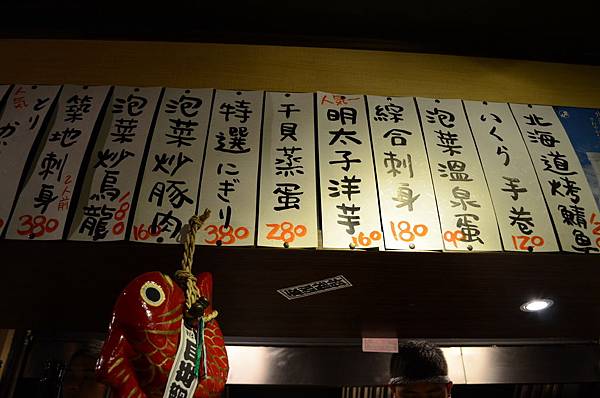 人気
とりかわ
築地刺身
2人前
380
泡菜炒烏龍
180
泡菜炒豚肉
160
特選にぎり
380
干貝蒸蛋
280
人気一
明太子洋芋
160
綜合刺身
180
泡菜溫泉蛋
90
いくら手卷
120
北海道烤鯖魚